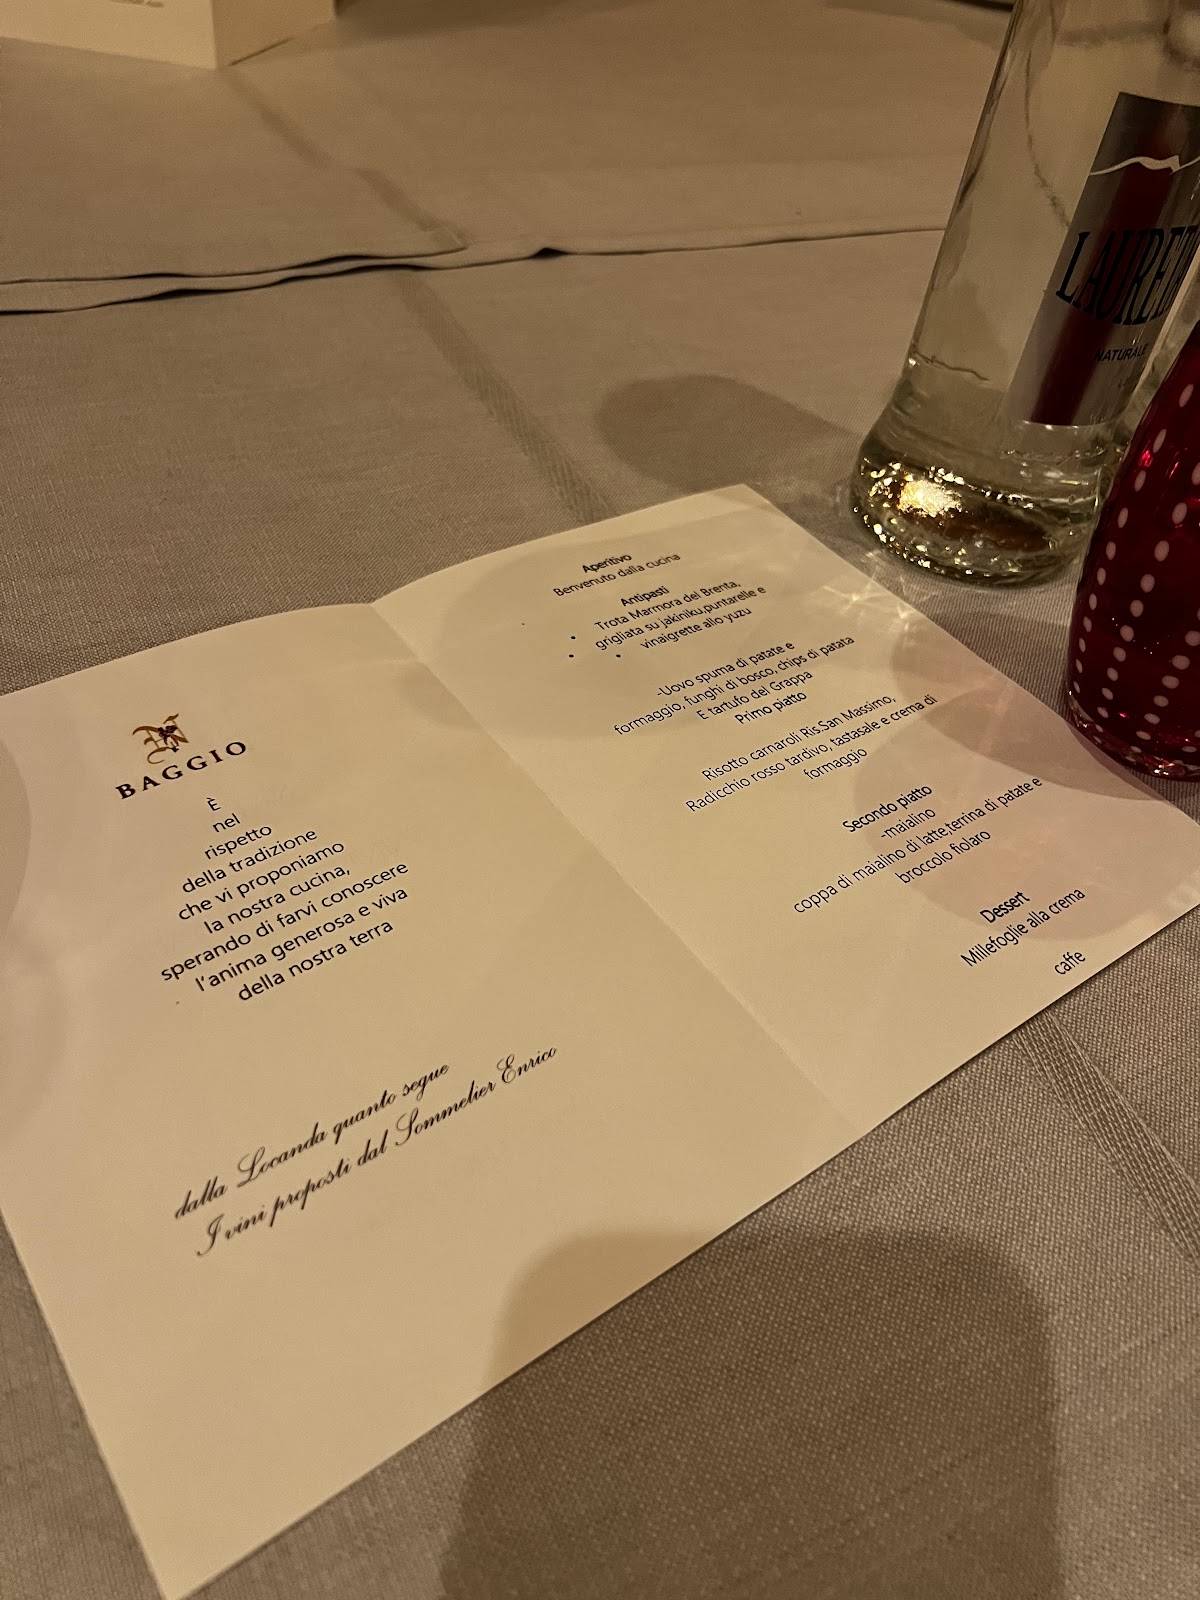 BAGGIO
È
nel
rispetto
della tradizione
che vi proponiamo
la nostra cucina,
sperando di farvi conoscere
l'anima generosa e viva
della nostra terra
dalla Locanda quanto segue
I vini proposti dal Sommelier Enrico
Aperitivo
Benvenuto dalla cucina
Antipasti
Trota Marmora del Brenta,
• grigliata su jakiniku,puntarelle e
• • vinaigrette allo yuzu
-Uovo spuma di patate e
formaggio, funghi di bosco, chips di patata
E tartufo del Grappa
Primo piatto
Risotto carnaroli Ris.San Massimo,
Radicchio rosso tardivo, tastasale e crema di
formaggio
Secondo piatto
-maialino
coppa di maialino di latte,terrina di patate e
broccolo fiolaro
Dessert
Millefoglie alla crema
caffe
NATURALE